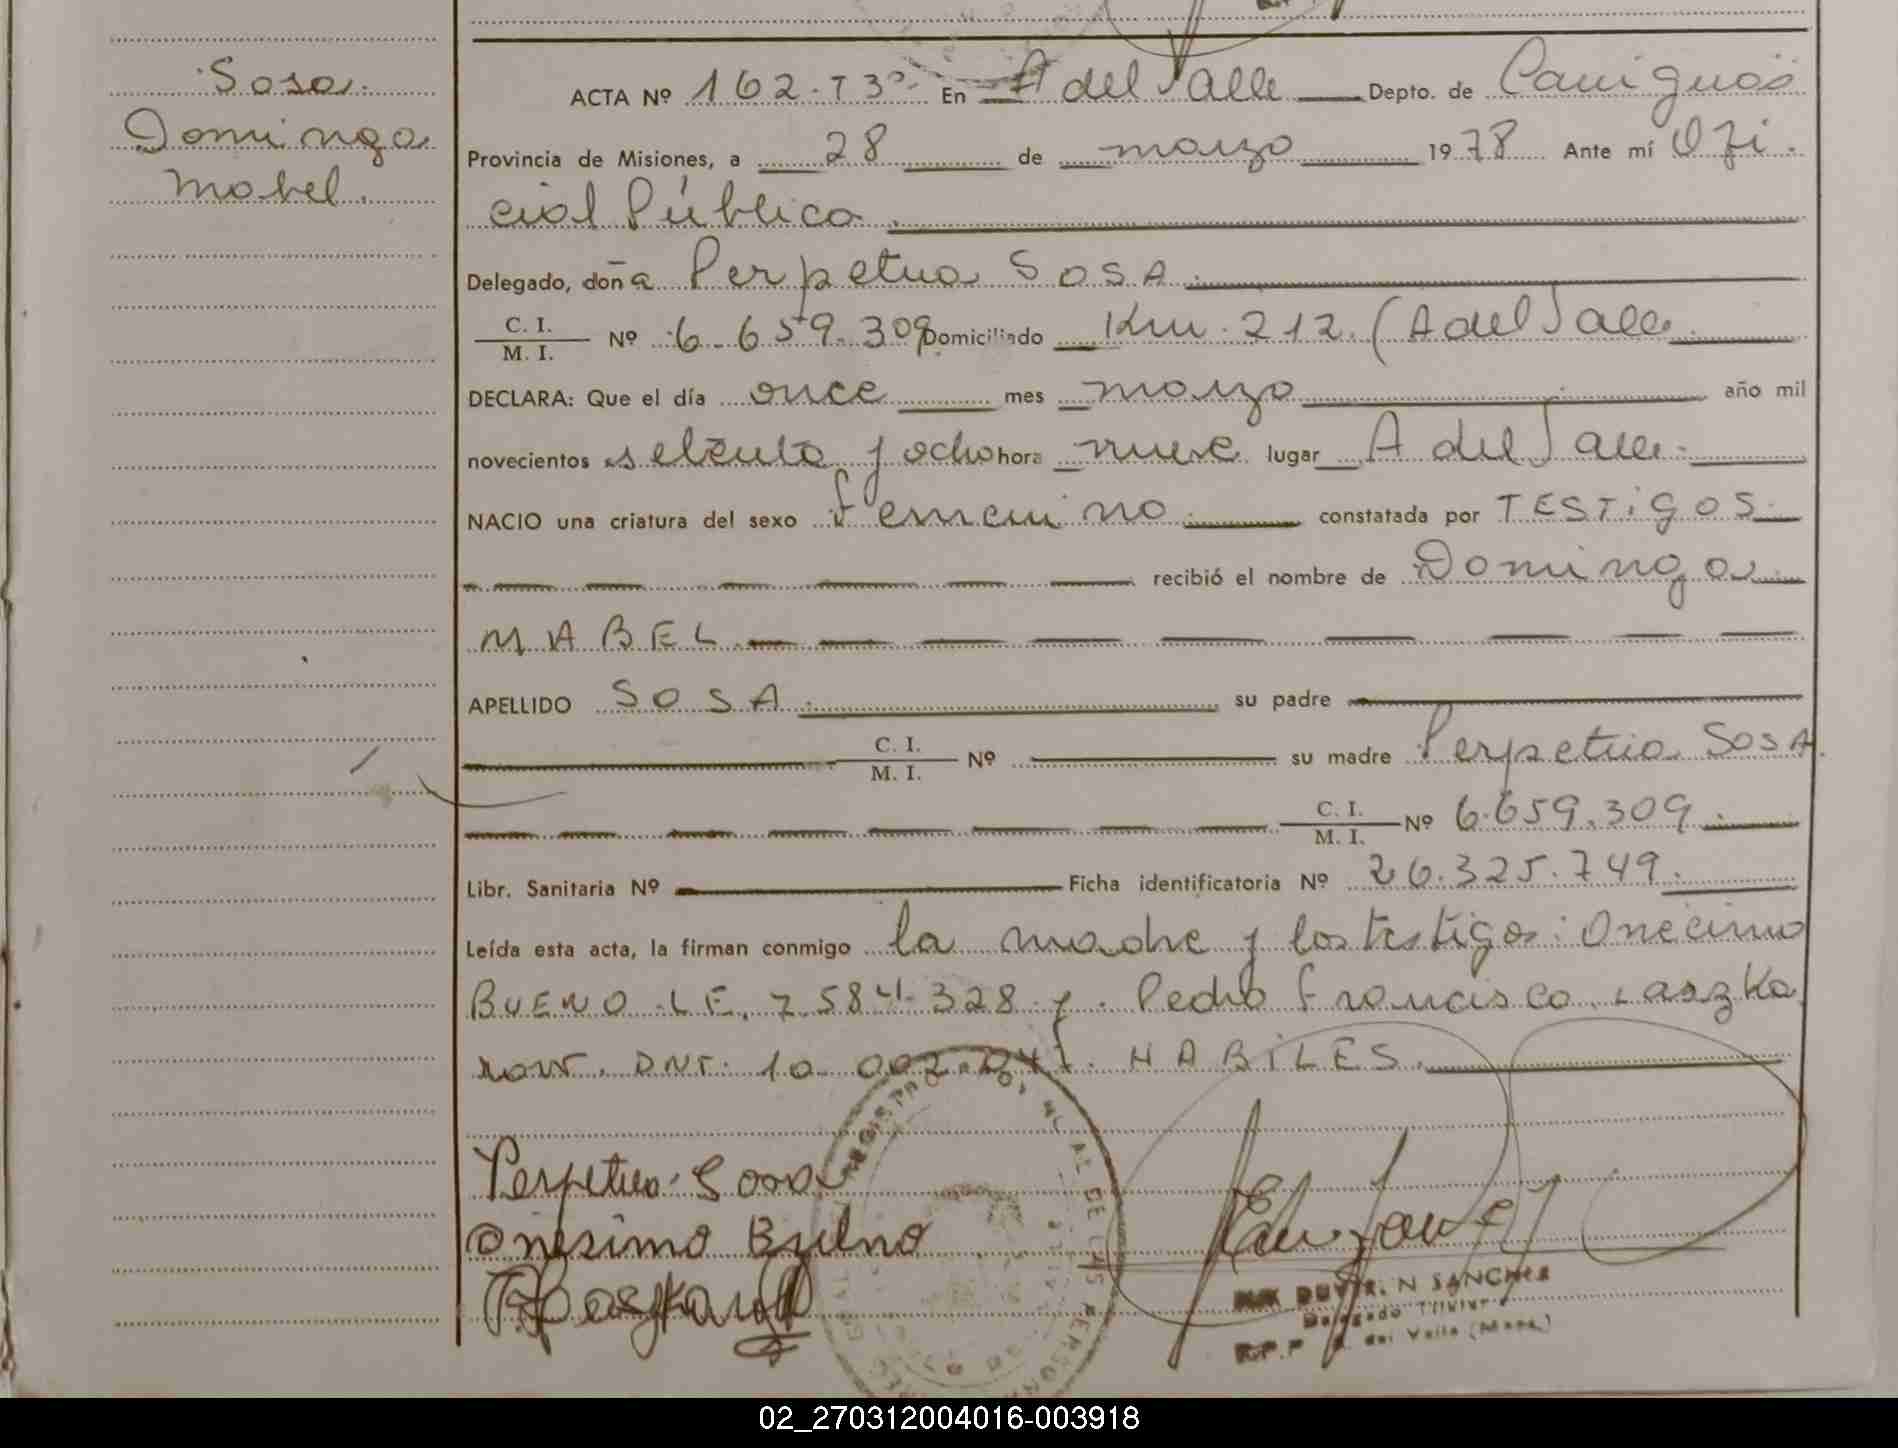 Sosa.
Dominga
Mabel.
ACTA Nº 162-T3º- En A del Valle Depto. de Cainguás
Provincia de Misiones, a 28 de marzo 1978 Ante mí Ofi-
cial Público
Delegado, doña Perpetua SOSA
C. I.
M. I. Nº 6.659.309 Domiciliado Km. 212. (A del Valle
DECLARA: Que el día once mes marzo año mil
novecientos setenta y ocho hora nueve lugar A del Valle.
NACIO una criatura del sexo femenino constatada por TESTIGOS
recibió el nombre de Dominga
MABEL
APELLIDO SOSA su padre
C. I.
M. I. Nº su madre Perpetua SOSA.
C. I.
M. I. Nº 6.659.309
Libr. Sanitaria Nº Ficha identificatoria Nº 26.325.749.
Leída esta acta, la firman conmigo la madre y los testigos: Onecimo
BUENO LE. 7.584.328 y Pedro Francisco Laszka
DNI. 10.002.047. HABILES.
Perpetua Sosa
Onesimo Bueno
N SANCHEZ
Delegado Titular
R.P.P. A. del Valle (Mnes.)
02_270312004016-003918